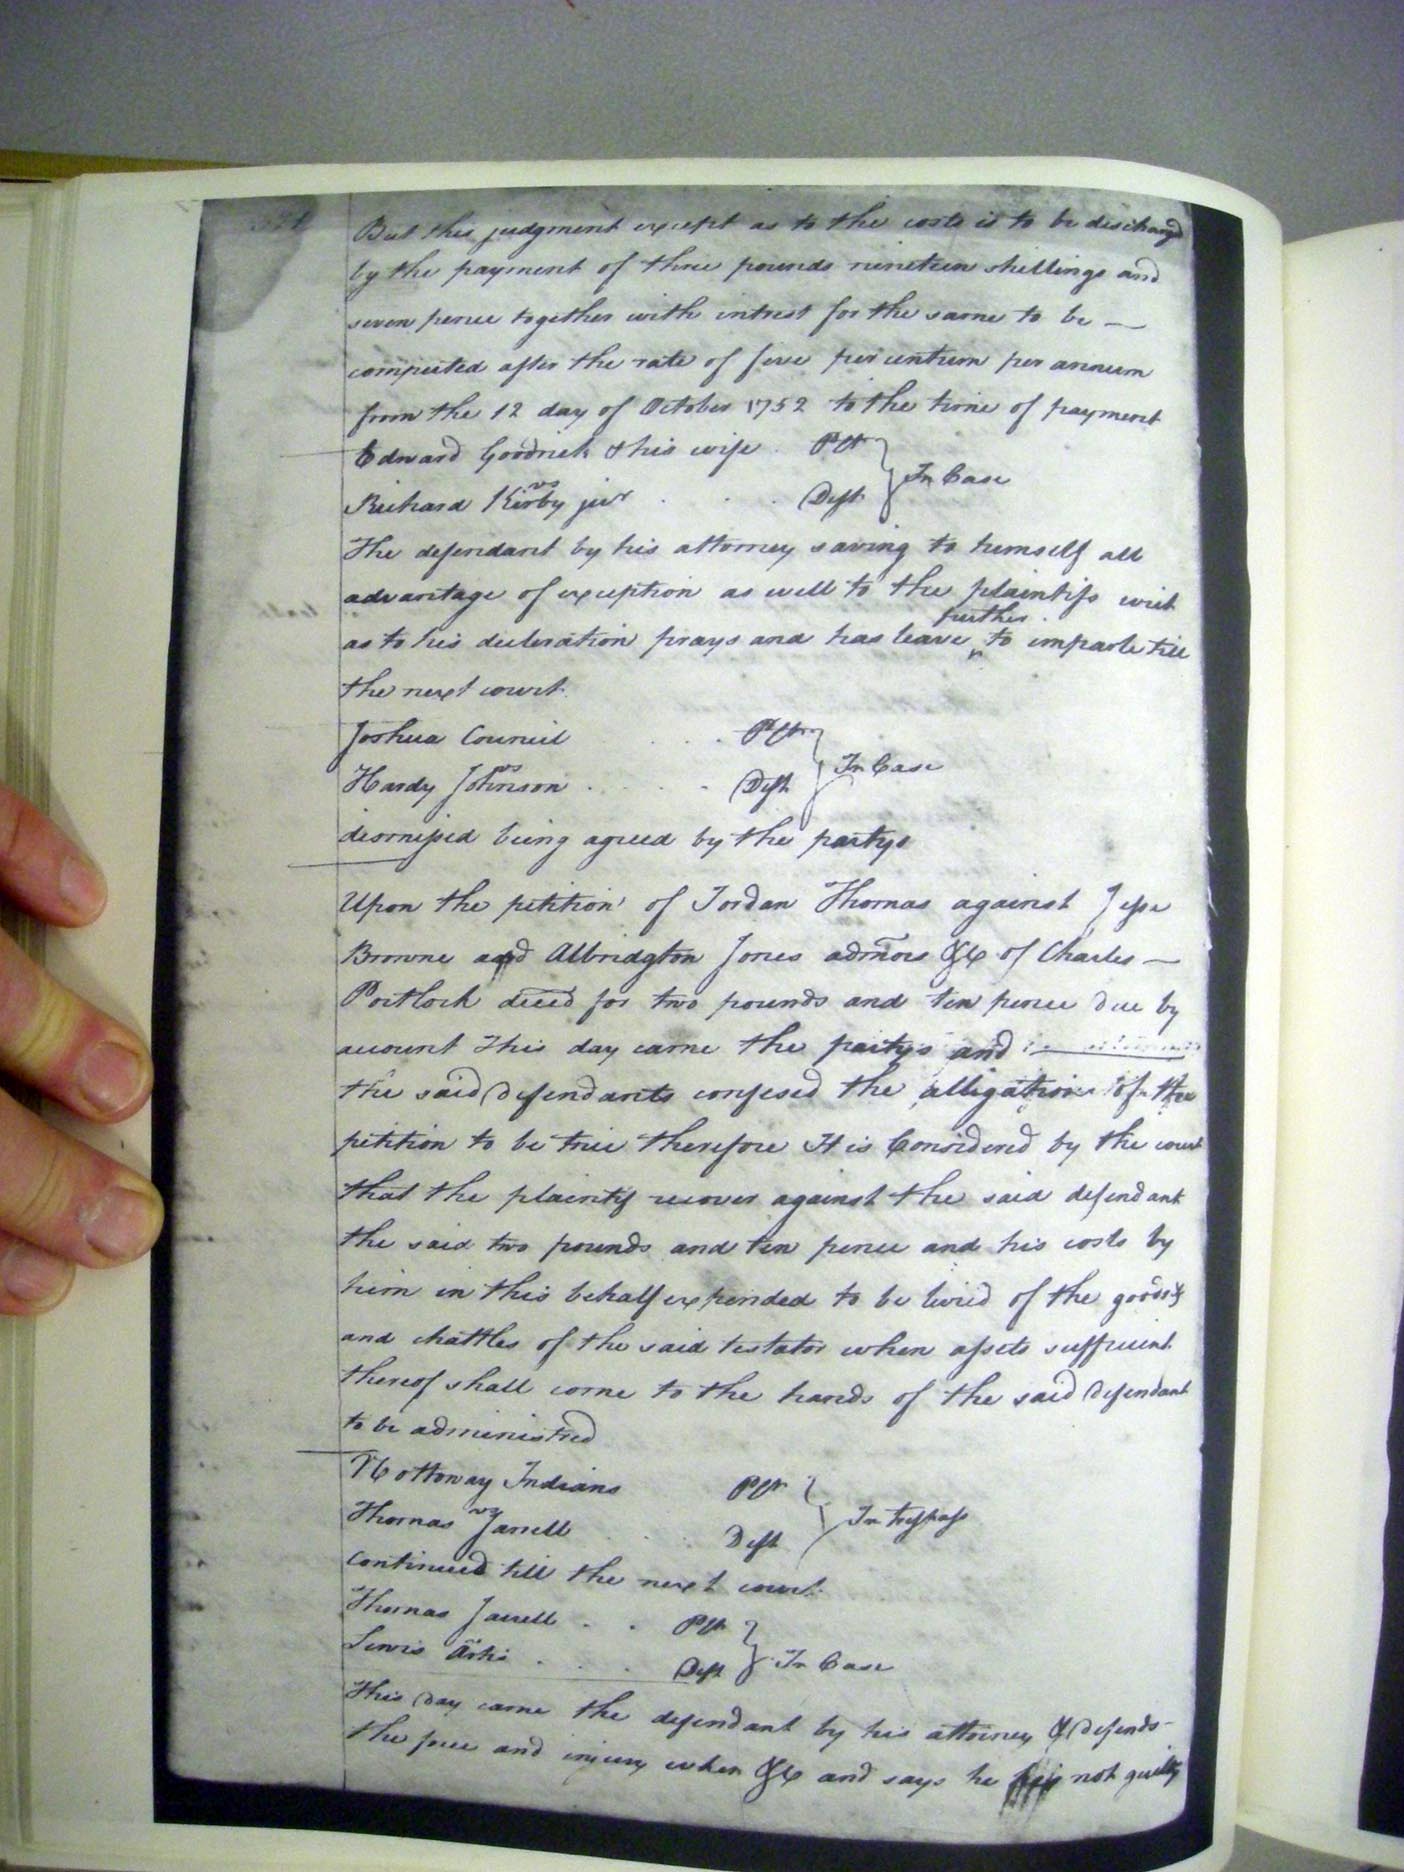 But this judgment except as to the costs is to be dischargd
by the payment of three pounds nineteen shillings and
seven pence together with intrest for the same to be —
computed after the rate of five per centum per annum
from the 12 day of October 1752 to the time of payment
Edward Goodrich & his wife . Plt
vs } In Case
Richard Kirby jur . . . Deft
The defendant by his attorney saving to himself all
advantage of exception as well to the plaintifs writ
further
as to his decleration prays and has leave ^ to imparle till
the next court
Joshua Council . . . Plt
vs } In Case
Hardy Johnson . . . . Deft
dismissed being agreed by the partys
Upon the petition of Jordan Thomas against Jesse
Browne and Albridgton Jones admors &c of Charles —
Portlock deced for two pounds and ten pence due by
account this day came the partys and
the said defendants confesed the alligations of the
petition to be true therefore It is Considered by the court
that the plaintif recover against the said defendant
the said two pounds and ten pence and his costs by
him in this behalf expended to be livied of the goods &
and chattles of the said testator when assets sufficient
thereof shall come to the hands of the said defendant
to be administred
Nottoway Indians Plt
vs } In trespass
Thomas Jarrell . . . Deft
continued till the next court
Thomas Jarrell . . Plt
vs } In Case
Lewis Artis . . . Deft
This day came the defendant by his attorney & defends
the force and injury when &c and says he is not guilty